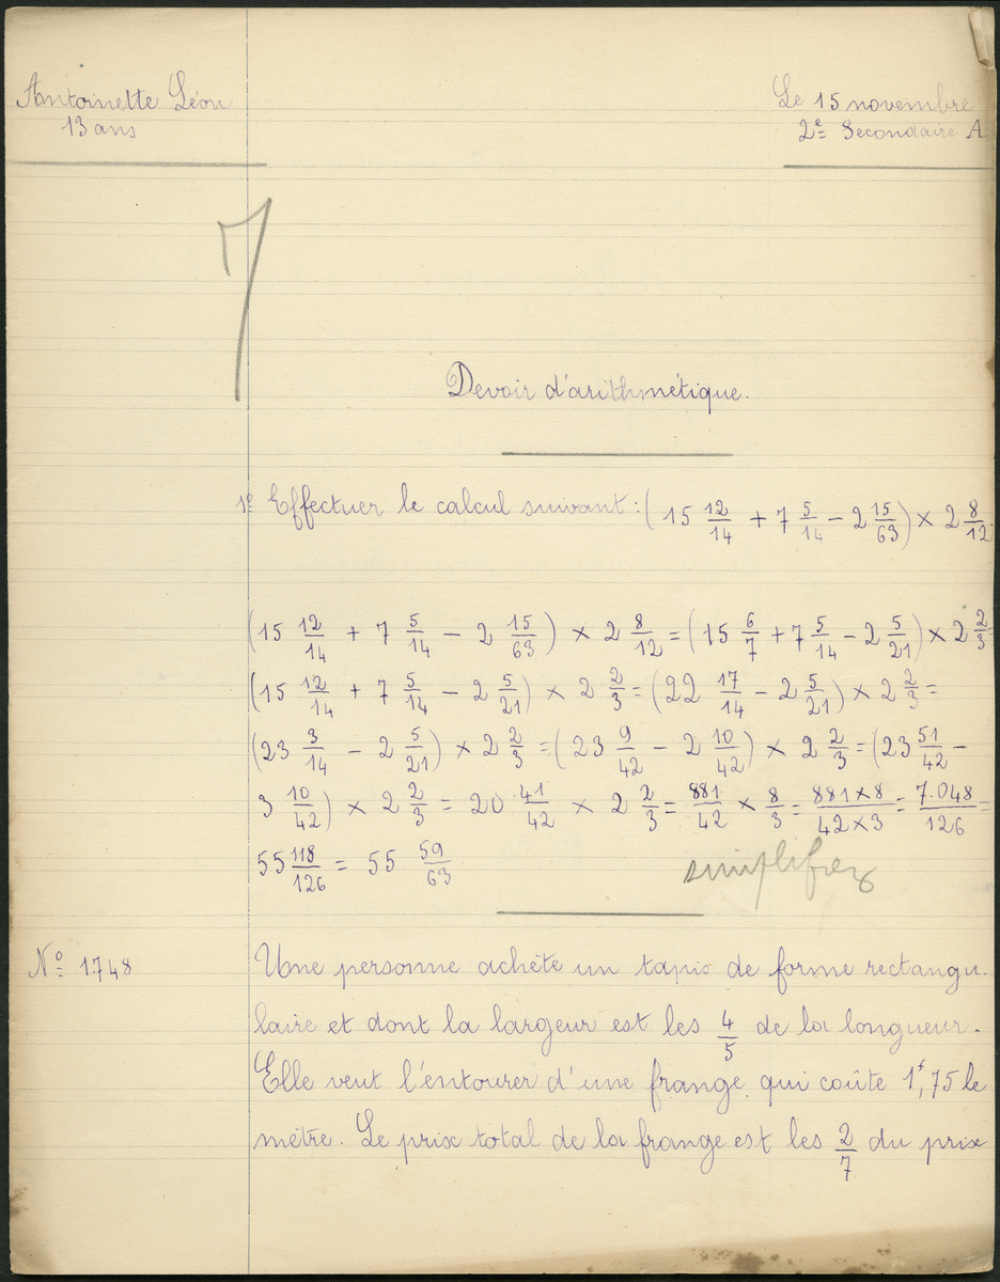 Antoinette Léon
13 ans
Le 15 novembre
2e Secondaire A
7
Devoir d'arithmétique.
1º Effectuer le calcul suivant : (15 12/14 + 7 5/14 - 2 15/63) × 2 8/12
(15 12/14 + 7 5/14 - 2 15/63) × 2 8/12 = (15 6/7 + 7 5/14 - 2 5/21) × 2 2/3 =
(15 12/14 + 7 5/14 - 2 5/21) × 2 2/3 = (22 17/14 - 2 5/21) × 2 2/3 =
(23 3/14 - 2 5/21) × 2 2/3 = (23 9/42 - 2 10/42) × 2 2/3 = (23 51/42 -
3 10/42) × 2 2/3 = 20 41/42 × 2 2/3 = 881/42 × 8/3 = 881×8/42×3 = 7.048/126 =
55 118/126 = 55 59/63
simplifiez
Nº 1748
Une personne achète un tapis de forme rectangu-
laire et dont la largeur est les 4/5 de la longueur.
Elle veut l'entourer d'une frange qui coûte 1f,75 le
mètre. Le prix total de la frange est les 2/7 du prix